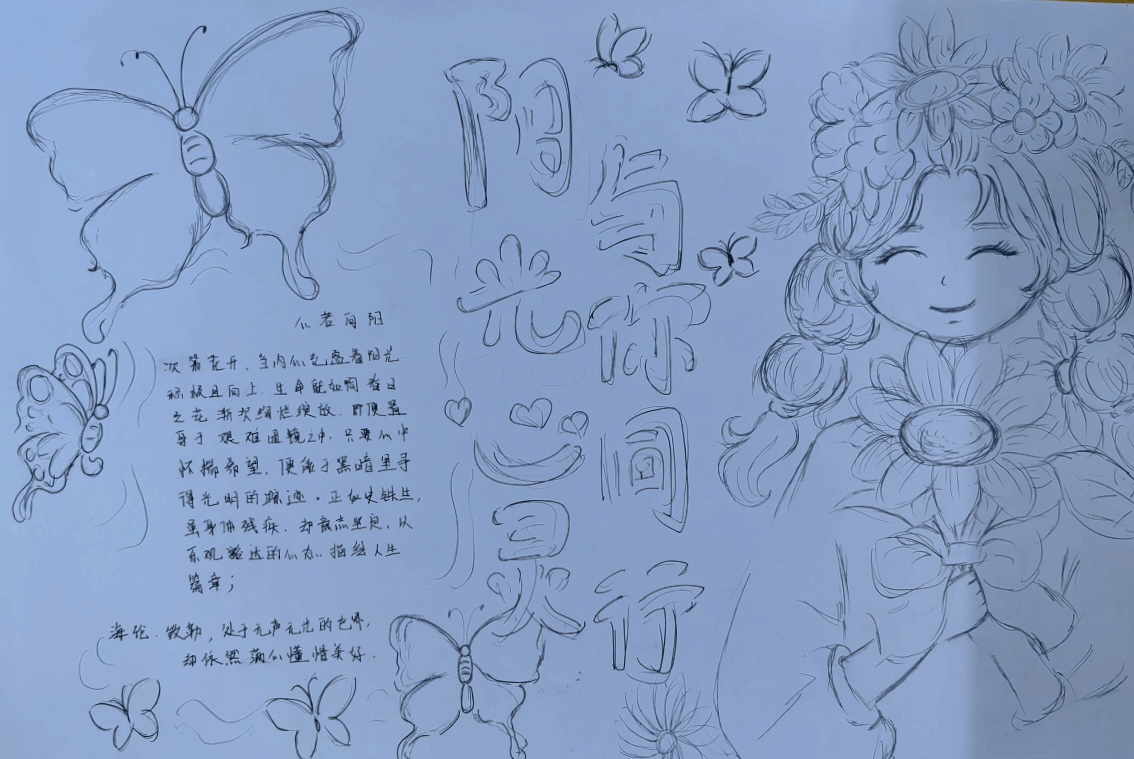 阳光心灵
与你同行
心若向阳
次第花开,当内心充盈着阳光
积极且向上,生命能如同春日
之花渐次绚烂绽放,即便置
身于艰难境之中,只要心中
怀揣希望,便能于黑暗里寻
得光明的踪迹。正似史铁生,
虽身体残疾,却意志坚定,以
乐观豁达的心态,描绘人生
篇章;
海伦.凯勒,处于无声无光的世界,
却依然满心憧憬美好.